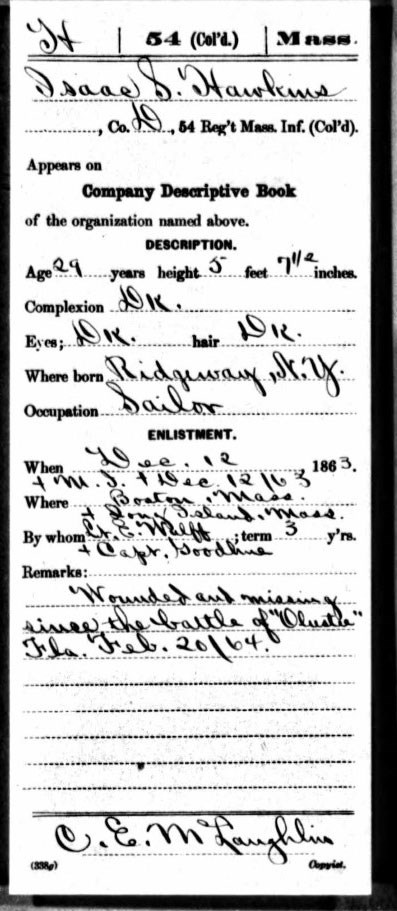 H | 54 (Col'd.) | Mass.
Isaac S. Hawkins
, Co. D, 54 Reg't Mass. Inf. (Col'd).
Appears on
Company Descriptive Book
of the organization named above.
DESCRIPTION.
Age 29 years height 5 feet 7 1/2 inches.
Complexion Dk.
Eyes; Dk. hair Dk.
Where born Ridgeway, N.Y.
Occupation Sailor
ENLISTMENT.
When Dec. 12, 1863.
+ M. I. + Dec 12/63
Where Boston, Mass.
+ Long Island, Mass.
By whom Lt. E. ; term 3 y'rs.
+ Capt.
Remarks:
Wounded and missing
since the battle of "Olustee"
Fla. Feb. 20/64.
C. E. McLaughlin
(338g) Copyist.